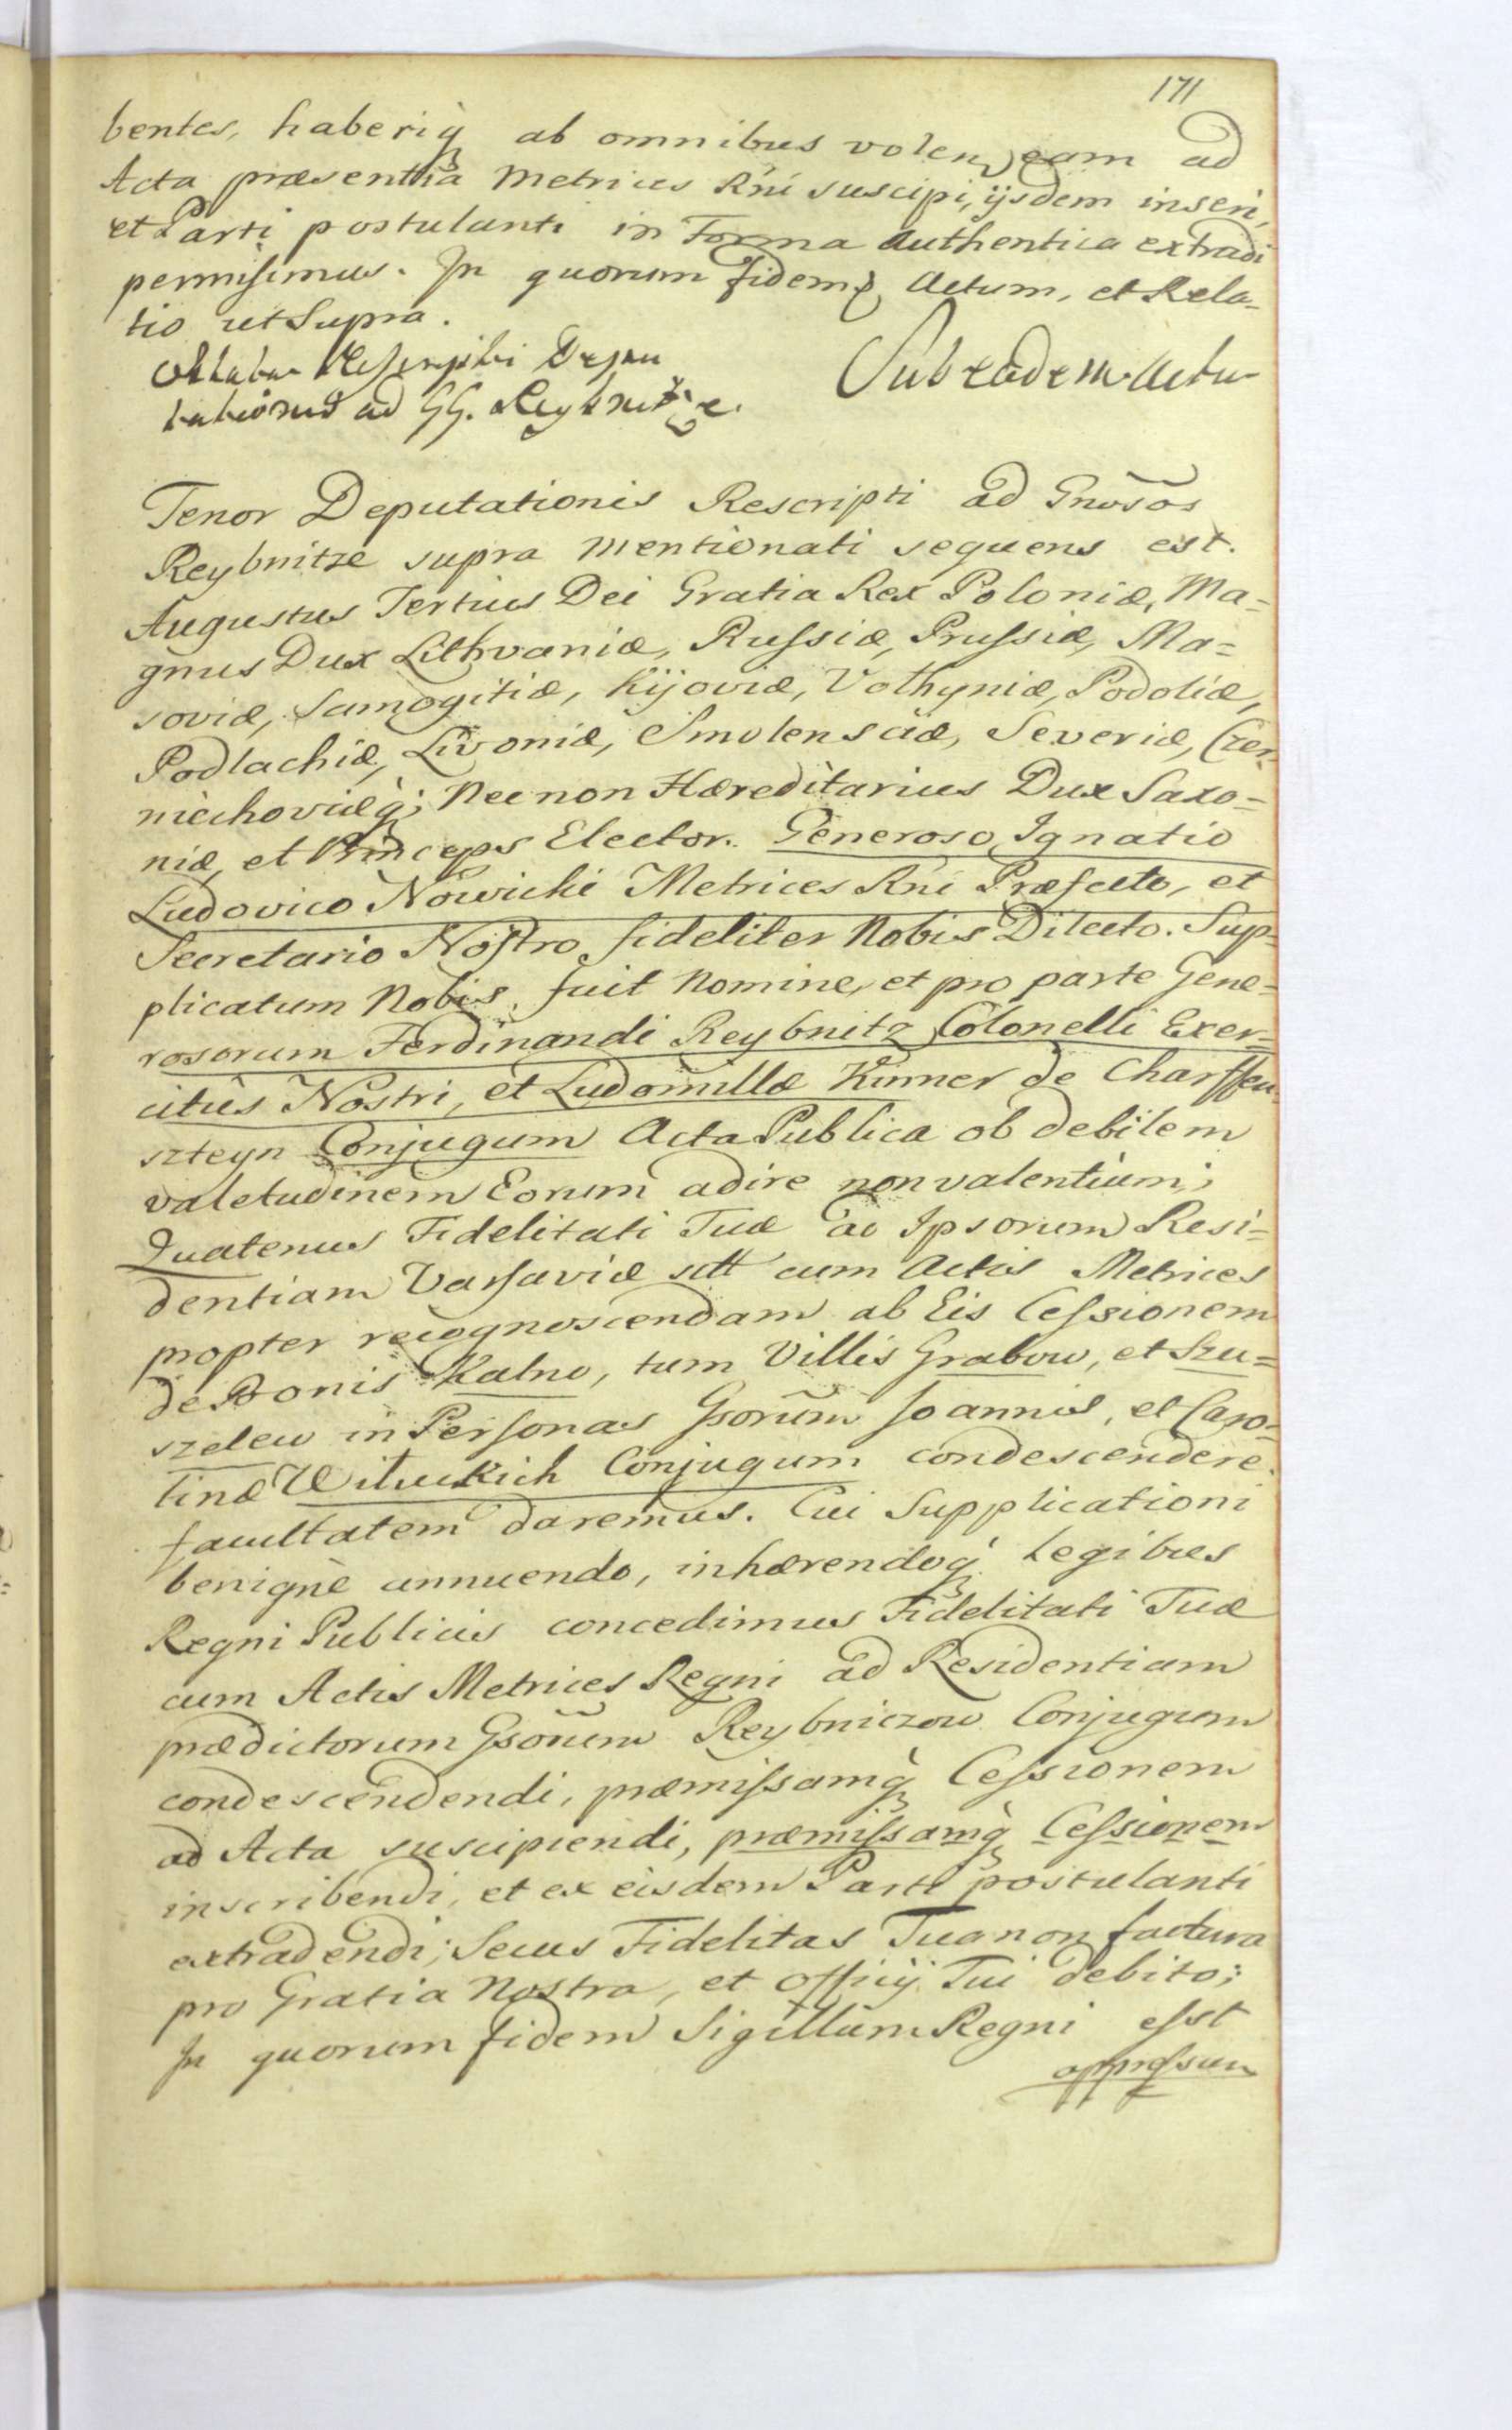 171
bentes, haberiq́ ab omnibus volen, eam ad
Acta præsentia Metrices Rni suscipi, ijsdem inseri,
et Parti postulanti in Forma Authentica extradi
permisimus. In quorum fidem Actum, et Rela-
tio ut Supra.
Oblata Rescripti Depu
tationis ad GG. Reybnitze.
Sub eadem Actu
Tenor Deputationis Rescripti ad Gnosos
Reybnitze supra mentionati sequens est.
Augustus Tertius Dei Gratia Rex Poloniæ, Ma=
gnus Dux Lithvaniæ, Russiæ, Prussiæ, Ma=
soviæ, Samogitiæ, Kijoviæ, Volhyniæ, Podoliæ,
Podlachiæ, Livoniæ, Smolensciæ, Severiæ, Czer-
niechoviæq́; Necnon Hæreditarius Dux Saxo=
niæ, et Princeps Elector. Generoso Ignatio
Ludovico Nowicki Metrices Rni Præfecto, et
Secretario Nostro, fideliter Nobis Dilecto. Sup=
plicatum Nobis fuit Nomine, et pro parte Gene=
rosorum Ferdinandi Reybnitz Colonelli Exer=
citûs Nostri, et Ludomillæ Kinner de Charffen-
szteyn Conjugum Acta Publica ob debilem
valetudinem Eorum adire non valentium;
Quatenus Fidelitati Tuæ ad Ipsorum Resi=
dentiam Varsaviæ stt cum Actis Metrices
propter recognoscendam ab Eis Cessionem
de Bonis Kalno, tum Villis Grabow, et Szu=
szelew in Personas Gsorum Joannis, et Caro=
linæ Wiluckich Conjugum condescendere
facultatem daremus. Cui Supplicationi
benigne annuendo, inhærendoq́ Legibus
Regni Publicis concedimus Fidelitati Tuæ
cum Actis Metrices Regni ad Residentiam
prædictorum Gsorum Reybniczow Conjugum
condescendendi, præmissamq́ Cessionem
ad Acta suscipiendi, præmissamq́ Cessionem
inscribendi, et ex eisdem Parti postulanti
extradendi; Secus Fidelitas Tua non factura
pro Gratia Nostra, et Officij Tui debito;
In quorum fidem Sigillum Regni esst
appressum